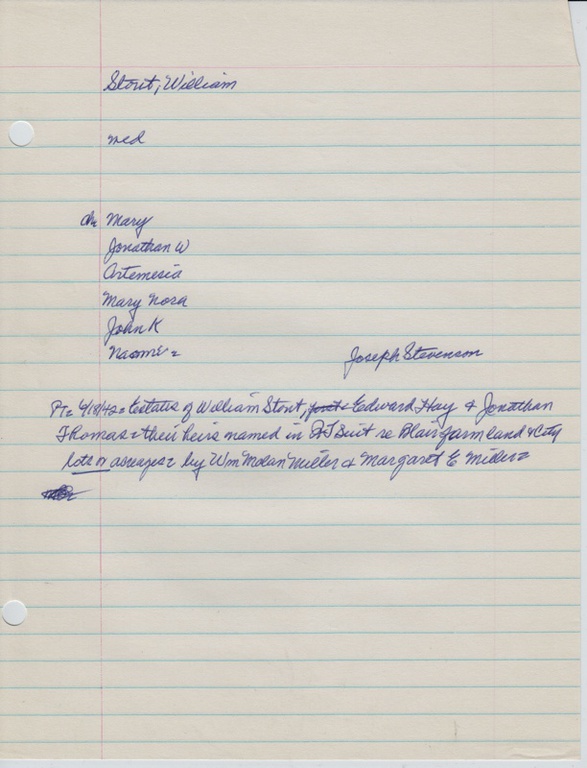 Stout, William
med
ch Mary
Jonathan W
Artemesia
Mary Nora
John K
Naomi =
Joseph Stevenson
PT= 4/18/42= Estates of William Stout, Edward Hay & Jonathan
Thomas= their heirs named in Suit re Blair farm land & City
lots or acreage= by Wm Miller & Margaret E Miller=